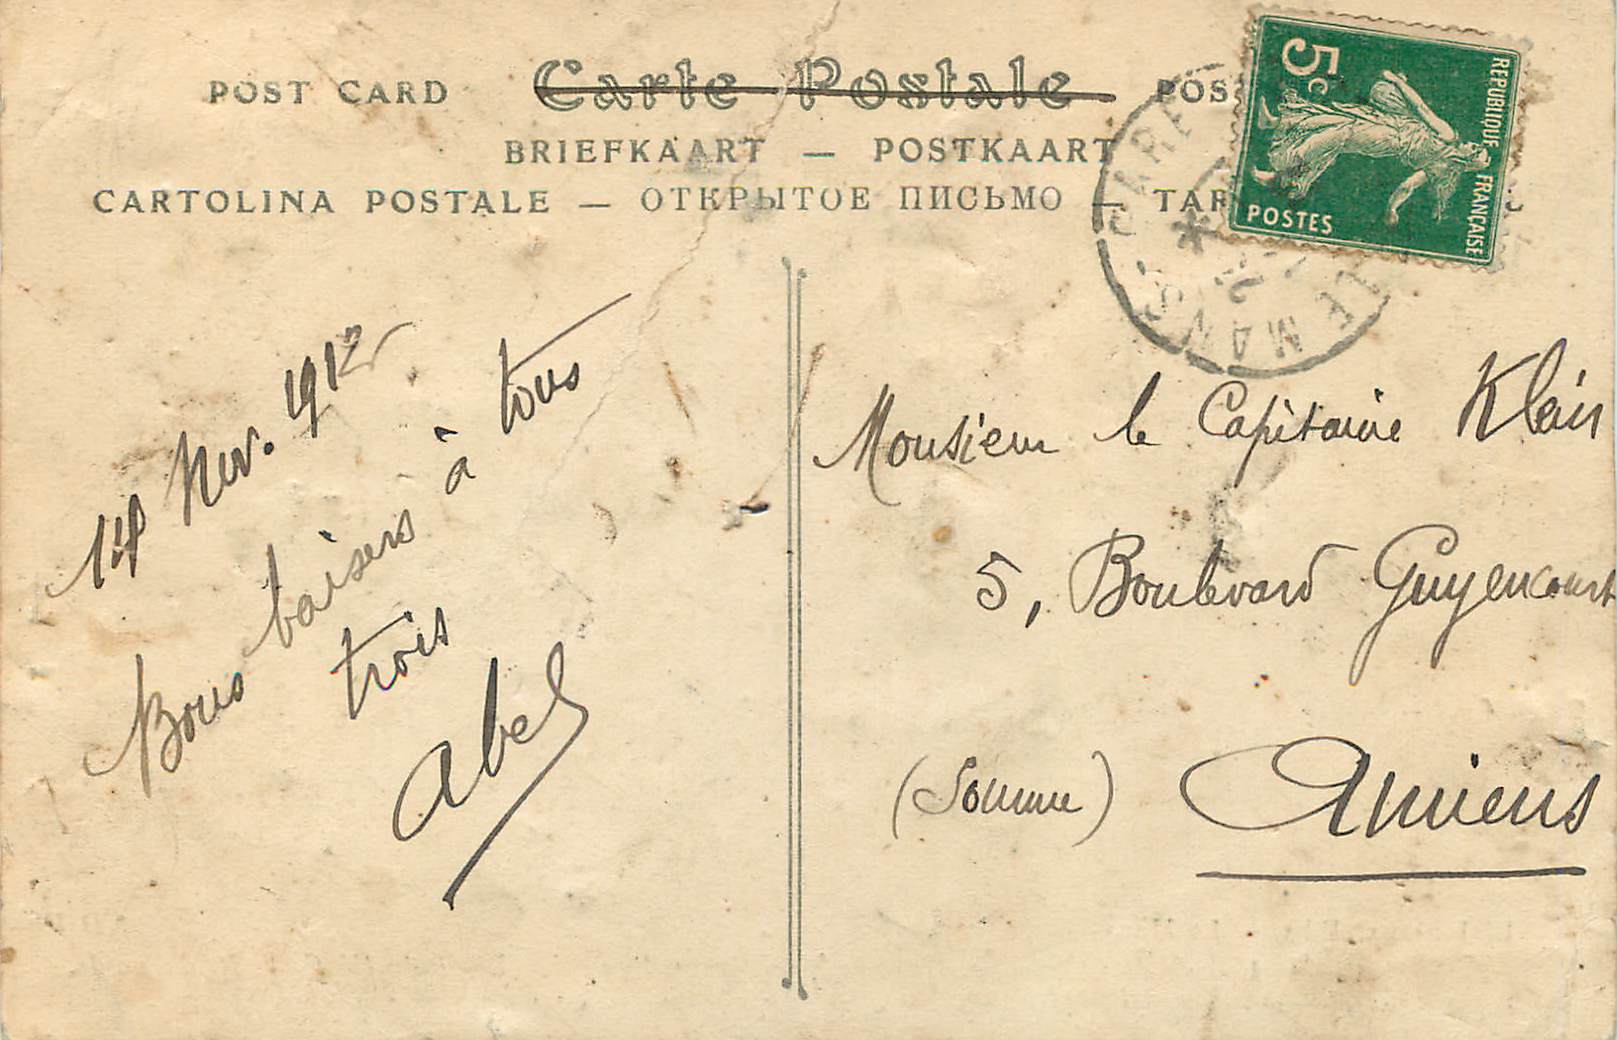 POST CARD Carte Postale POS
BRIEFKAART — POSTKAART
CARTOLINA POSTALE — ОТКРЫТОЕ ПИСЬМО — TAR
5c
REPUBLIQUE FRANÇAISE
POSTES
GARE
LE MANS
14 Nov. 1912
Bons baisers à tous
trois
Abel
Monsieur le Capitaine Klein
5, Boulevard Guyencourt
(Somme) Amiens